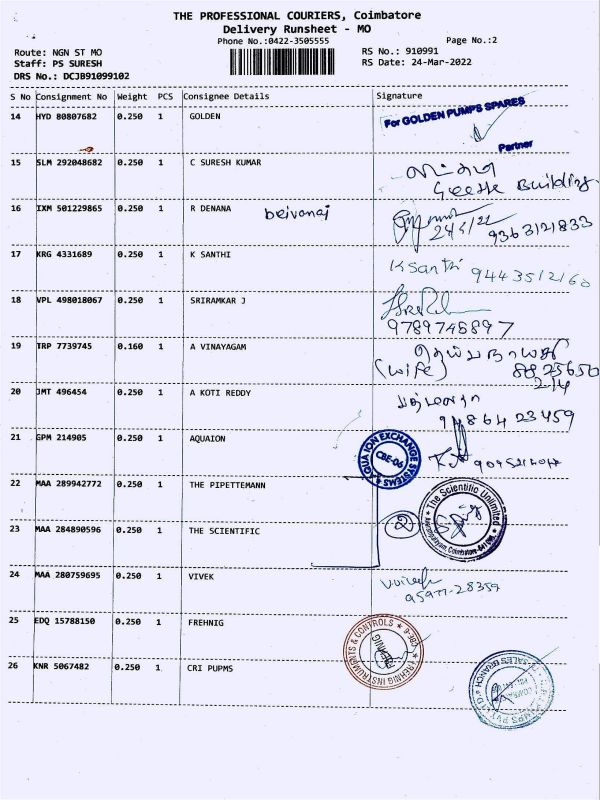 THE PROFESSIONAL COURIERS, Coimbatore
Delivery Runsheet - MO
Phone No.:0422-3505555
Page No.:2
Route: NGN ST MO
RS No.: 910991
Staff: PS SURESH
RS Date: 24-Mar-2022
DRS No.: DCJB91099102
S No Consignment No Weight PCS Consignee Details Signature
14 HYD 80807682 0.250 1 GOLDEN
For GOLDEN PUMPS SPARES
Partner
15 SLM 292048682 0.250 1 C SURESH KUMAR
Geetha Building
16 IXM 501229865 0.250 1 R DENANA
9363121833
17 KRG 4331689 0.250 1 K SANTHI
K Santhi 9443512160
18 VPL 498018067 0.250 1 SRIRAMKAR J
9789748897
19 TRP 7739745 0.160 1 A VINAYAGAM
(wife) 8825650
214
20 JMT 496454 0.250 1 A KOTI REDDY
9486423459
21 GPM 214905 0.250 1 AQUAION
AQUA ION EXCHANGE SYSTEMS
CBE-06
22 MAA 289942772 0.250 1 THE PIPETTEMANN
The Scientific Unlimited
2
23 MAA 284890596 0.250 1 THE SCIENTIFIC
24 MAA 280759695 0.250 1 VIVEK
95977-28359
25 EDQ 15788150 0.250 1 FREHNIG
FREHNIG INSTRUMENTS & CONTROLS
CBE-6
FREHNIG
26 KNR 5067482 0.250 1 CRI PUPMS
SALES BRANCH